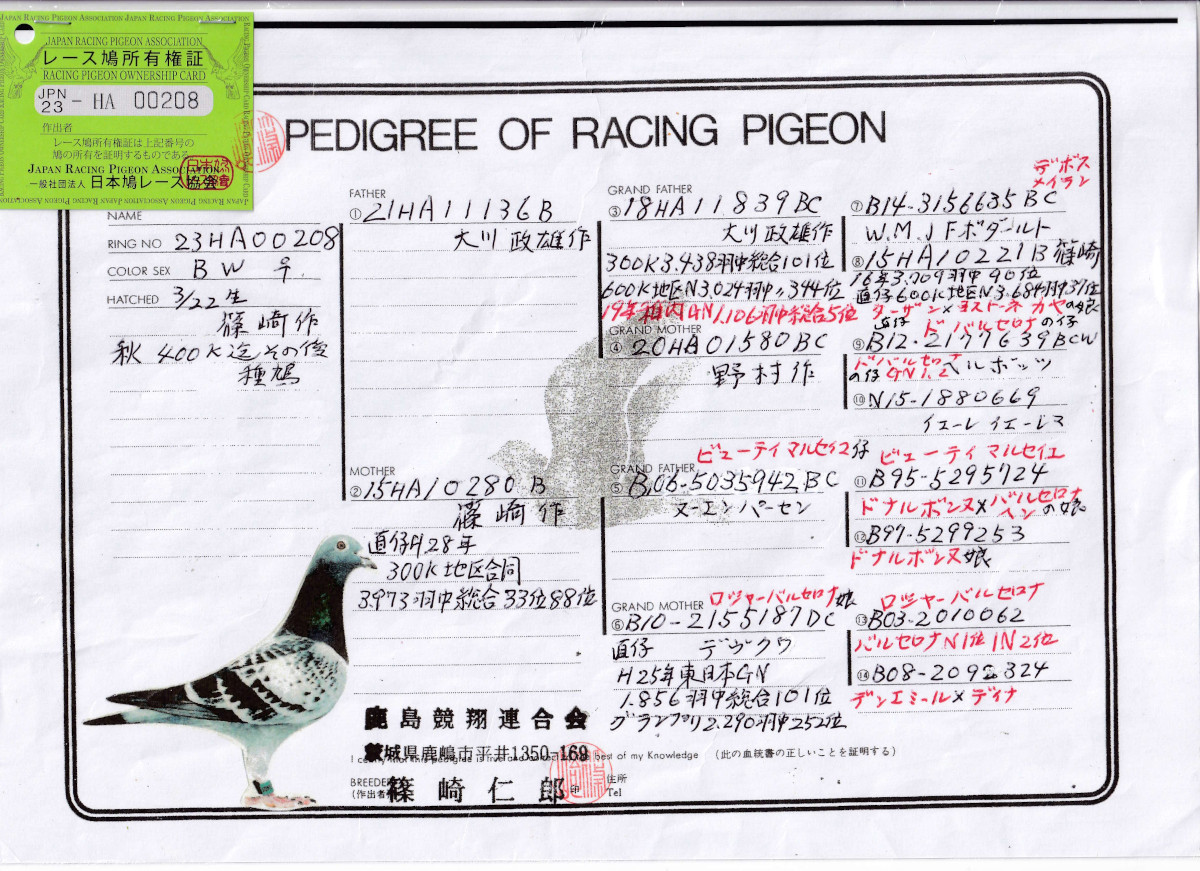 JAPAN RACING PIGEON ASSOCIATION
レース鳩所有権証
RACING PIGEON OWNERSHIP CARD
JPN 23 - HA 00208
作出者
レース鳩所有権証は上記番号の
鳩の所有を証明するものである
JAPAN RACING PIGEON ASSOCIATION
一般社団法人 日本鳩レース協会
PEDIGREE OF RACING PIGEON
NAME
RING NO 23HA00208
COLOR SEX B W ♀
HATCHED 3/22生
篠崎作
秋 400K迄その後
種鳩
FATHER
① 21HA11136B
大川政雄作
MOTHER
② 15HA10280 B
篠崎作
直仔H28年
300K地区合同
3.973羽中総合33位88位
GRAND FATHER
③ 18HA11839BC
大川政雄作
300K3.438羽中総合101位
600K地区N3.024羽中〃344位
19年稚内GN1.106羽中総合5位
GRAND MOTHER
④ 20HA01580BC
野村作
ビューティマルセイユ仔
GRAND FATHER
⑤ B06-5035942BC
ヌーエンパーセン
GRAND MOTHER ロジャーバルセロナ娘
⑥ B10-2155187DC
直仔 デヴクワ
H25年東日本GN
1.856羽中総合101位
グランプリ2.290羽中252位
デボス
メイラン
⑦ B14-3156635BC
W.M.JFボダールト
⑧ 15HA10221B 篠崎
16年3.709羽中90位
直仔600K地区N3.684羽中37位
ターザン×ヨストーネ カヤの娘
直仔 ド バルセロナの仔
⑨ B12-2177639BCW
ドバルセロナ
の仔 GN1.2 ベルボッツ
⑩ N15-1880669
イエーレイエーレマ
ビューティ マルセイエ
⑪ B95-5295724
ドナルボンヌ×バルセロナ
ヘンの娘
⑫ B97-5299253
ドナルボンヌ娘
ロジャーバルセロナ
⑬ B03-2010062
バルセロナN1位IN2位
⑭ B08-209 324
デンエミール×ディナ
鹿島競翔連合会
茨城県鹿嶋市平井1350-169
I certify that this pedigree is true and correct to the best of my Knowledge (此の血統書の正しいことを証明する)
BREEDER
(作出者) 篠崎仁郎 印
住所
Tel